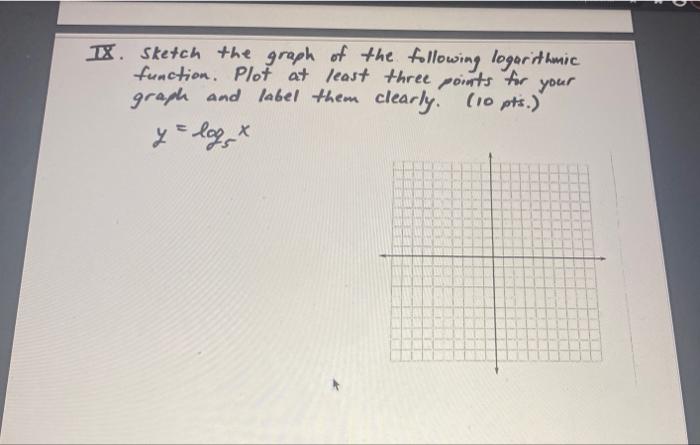 IX. Sketch the graph of the following logarithmic
function. Plot at least three points for your
graph and label them clearly. (10 pts.)
y = log₅ x